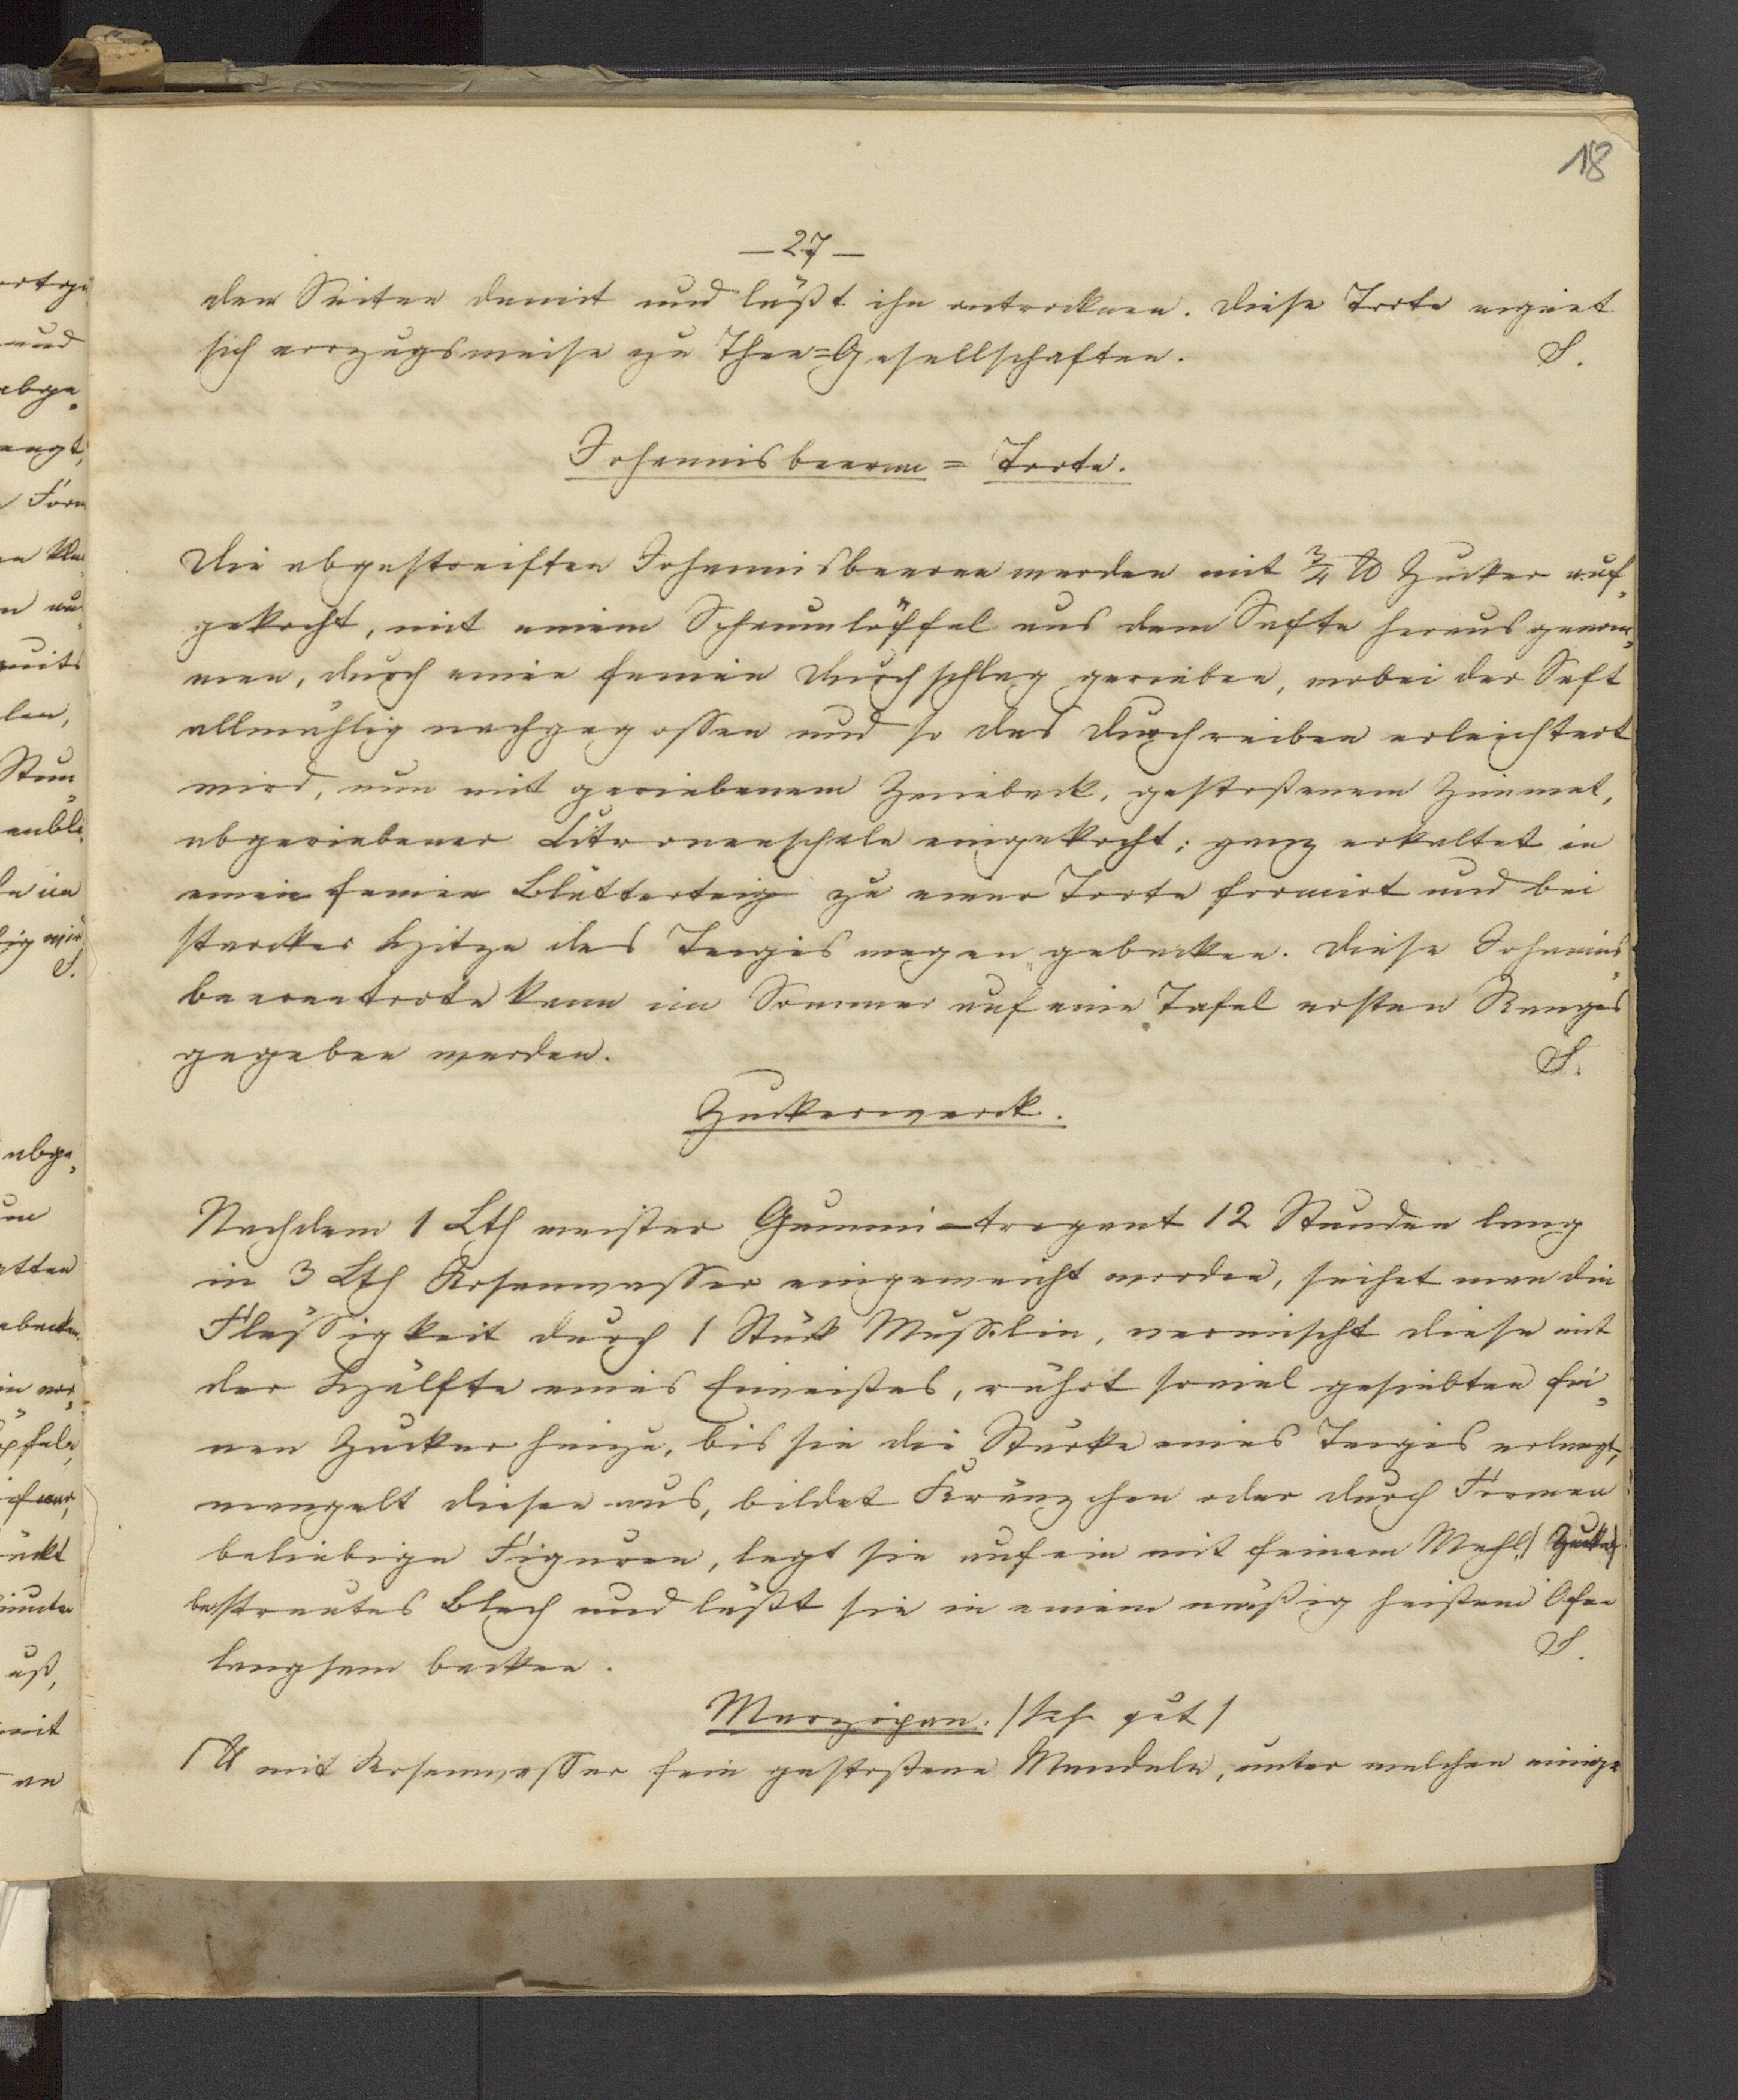 18
— 27 —
den Seiten damit und läßt ihn antrocknen. Diese Torte eignet
sich vorzugsweise zu Thee=Gesellschaften. S.
Johannisbeeren = Torte.
Die abgestreiften Johannisbeeren werden mit 3/4 ℔ Zucker auf„
gekocht, mit einem Schaumlöffel aus dem Safte herausgenom„
men, durch einen feinen Durchschlag gerieben, wobei der Saft
allmählig nachgegossen und so das Durchreiben erleichtert
wird, nun mit geriebenem Zwieback, gestoßenem Zimmet,
abgeriebener Citronenschale eingekocht; ganz erkaltet in
einen feinen Blätterteig zu einer Torte formirt und bei
starcker Hitze des Teiges wegen gebacken. Diese Johannis„
beerentorte kann im Sommer auf eine Tafel ersten Ranges
gegeben werden. S.
Zuckerwerck.
Nachdem 1 Lth weißer Gummi-tragant 12 Stunden lang
in 3 Lth Rosenwasser eingeweicht worden, seihet man die
Flüssigkeit durch 1 Stück Musslin, vermischt diese mit
der Hälfte eines Eiweißes, rührt soviel gesiebten fei„
nen Zucker hinzu, bis sie die Stärke eines Teiges erlangt,
mangelt diesen aus, bildet Kränzchen oder durch Formen
beliebige Figuren, legt sie auf ein mit feinem Mehl (Zucker)
bestreutes Blech und läßt sie in einem mäßig heißem Ofen
langsam backen. S.
Marzipan. /sehr gut/
1 ℔ mit Rosenwasser fein gestoßene Mandeln, unter welchen einige